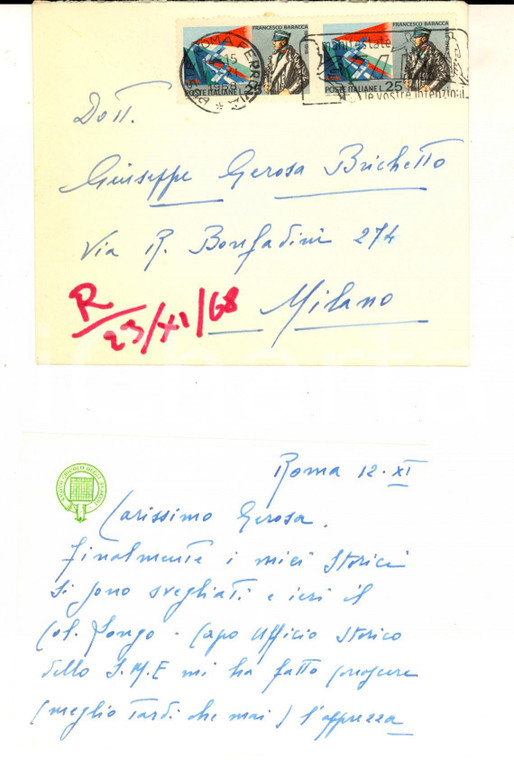 FRANCESCO BARACCA
FRANCESCO BARACCA
ROMA FERR
manifestate
15
1968
POSTE ITALIANE L.
POSTE ITALIANE L. 25
le vostre intenzioni
Dott.
Giuseppe Gerosa Brichetto
Via R. Bonfadini 274
Milano
R
23/XI/68
Roma 12.XI
Carissimo Gerosa,
finalmente i miei storici
si sono svegliati e ieri il
Col. Longo - Capo Ufficio Storico
dello S.M.E mi ha fatto
(meglio tardi che mai) l'apprezza